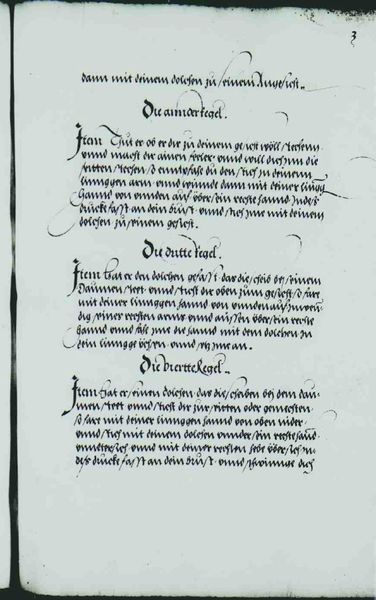 3
dann mit deinem dolchen zu seinem Angesicht
Die annder Regel.
Item Thut er ob er dir zu deinem gesicht wöll stechenn
vnnd macht dir ainen feler vnnd will dich jnn die
seitten stechen so empfach du den stich in deinenn
linnggen arm vnnd winnde dann mit deiner lingg
hannd von vnnden auf über sein rechte hannd
druckh fasst an dein brust vnnd stich jne mit deinem
dolchen zu seinem gesicht.
Die dritte Regel.
Item hat er den dolchen gefasst das die scheib bej seinem
Daumen steet vnnd sticht dir oben zum gesicht so fare
mit deiner linnggen hannd von vnnden auf
seines rechten arms von aussen über sein rechte
hannd vnnd fass jme die hannd mit dem dolchen zu
dein lingge
Die viertte Regel.
Item hat er seinen dolchen das die scheiben bej dem dau-
men steet vnnd sticht dir zur seitten oder gemechten
so fare mit deiner linnggen hannd von oben nider
vnnd stich mit deinem dolchen vnnder sein rechte hannd
vnnd mit deiner rechten hebe über sich
druckh fasst an dein brust vnnd schwinnge dich